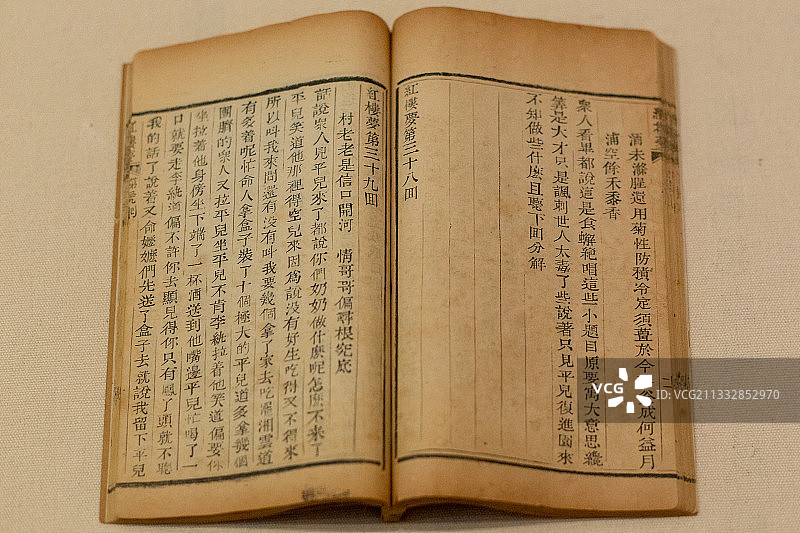 酒未滌腥還用菊性防積冷定須薑於今
成何益月
浦空餘禾黍香
衆人看畢都說這是食蟹絶唱這些小題目原要寓大意思纔
算是大才只是諷刺世人太毒了些說著只見平兒復進園來
不知做些什麽且聽下回分解
紅樓夢第三十八回
紅樓夢第三十九回
村老老是信口開河 情哥哥偏尋根究底
話說衆人見平兒來了都說你們奶奶做什麽呢怎麽不來了
平兒笑道他那裡得空兒來因爲說没有好生吃得又不得來
所以叫我來問還有没有叫我要幾個拿了家去吃罷湘雲道
有多着呢忙命人拿盒子裝了十個極大的平兒道多拿幾個
團臍的衆人又拉平兒坐平兒不肯李紈拉着他笑道偏要你
坐拉著他身傍坐下端了一杯酒送到他嘴邊平兒忙喝了一
口就要走李紈道偏不許你去顯見得你只有鳳丫頭就不聽
我的話了說着又命嬷嬷們先送了盒子去就說我留下平兒
VCG
ID: VCG211332852970